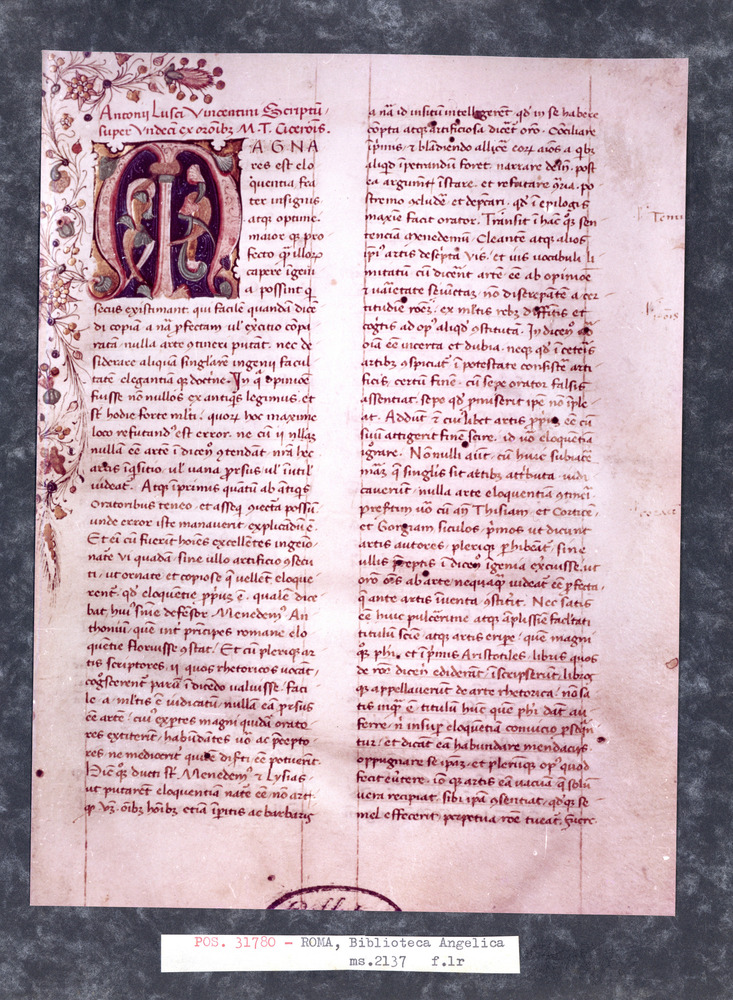 Antonij Lusci Vincentini Scriptū
super Vndecī ex orōibꝫ M. T. Ciceroīs.
MAGNA
res est elo
quentia frā
ter insignis
atqꝫ optime.
maior qꝫ pro
fecto qꝫ illorꝫ
capere īgeniū
a possint q̄
secus existimant. qui facile quandā dicē
di copiā a nā ꝑfectam ul' exercitio cōpa
ratā nulla arte ꝯtineri putāt. nec de
siderare aliquā singlarē ingenii facul
tatē elegantiā qꝫ doctrine. In q̄ opinioē
fuisse nō nullos ex antiqs legimus. et
sūt hodie forte mlti. quorꝫ hoc maxime
loco refutandꝰ est error. ne cū ii nllāꝫ
nullā eē artē ī dicēn ꝯtendāt. nrā hec
artis īqsitio. ul' vana ꝓrsus ul' īutil'
uideat᷑. Atqꝫ īprimis quātū ab ātiqs
Oratoribus teneo. et asseq ꝯiecta possū.
unde error iste manauerit explicādū ē.
Et eī cū fuerīt hoīes excellētes ingenio
nate vi quadā. sine ullo artificio ꝯsecu
ti. ut ornate et copiose q̄ vellēt eloque
rent᷑. qd eloquētie ppriꝰ ē. quale dice
bat huiꝰ sīne defēsor. Menedemꝰ An
thonium. quē int' prīcipes romane elo
quētie floruisse ꝯstat. Et cū pleriqꝫ ar
tis scriptores. ii quos rhetoricos uocāt,
cogscerent parū ī dicēdo valuisse. faci
le a mltis ē iudicatū nullā eā ꝓrsus
eē artē. cui exꝑtes magni quidā orato
res extiterīt. habūdātes uō ac p̄cepto
res ne mediocrit' quidē diſti eē potuerīt.
Hāc qꝫ ducti sūt Menedemꝰ & Lysias.
ut putarēt eloquentiā nate eē nō arti.
qꝫ vꝫ. oībꝫ hoībꝫ etiā īꝑitis ac barbaris
a nā id insitū intelligerēt. qd in se habere
cōpta atqꝫ artificiosa dicat᷑ orō. Cōciliare
īprimis. & blādiendo allicē eorꝫ aīos a qbꝫ
aliqd īpetrandū foret. narrare dein. post
ea argumt' īstare. et refutare ꝯtra. po
stremo ꝯcludē. et depcari. qd ī epilogis
maxie facit orator. Trāsit ī hāc qꝫ sen
tenciā Menedemū. Cleantes atqꝫ alios.
ipsiꝰ artis descpta vis. et eiꝰ vocabuli li
mitatū cū dicerīt artē. eē ab opinioē
& varietate seiūctaꝫ. nō discrepātē a cer
titudīe roēꝫ. ex mltis rebꝫ diffitis et
cogtis ad opꝰ aliqd ꝯstitutā. In dicēn qd
oīa eē incerta et dubia. neqꝫ qd ī ceteris
artibꝫ ꝯspiciat᷑ ī potestate consistē arti
ficis. certū finē. cū sepe orator falsis
assenciat. sepe qd pmiserit ipē nō īple
at. Addūt ē cuiuslibet artis ꝓpriū. eē cū
suū attigerit finē scire. id uō eloquētiā
ignare. Nōnulli aūt. cū huic subiacē
māꝫ. q̄ singulis sit artibꝫ attributa. uidi
cauerūt. nulla arte eloquentiā ꝯtīneri
presertim uō cū an Thisiam. et Coricē.
et Gorgiam siculos. primos ut dicunt
artis autores. pleriqꝫ ꝑhibeāt᷑. sine
ullis p̄ceptis ī dicēn igenia excuisse. ut
orō oīs ab arte nequaqꝫ uideat᷑ eē ꝑfecta.
q̄ ante artis īuenta ꝯstitit. Nec satis
eē huic pulcerrime atqꝫ āplissie facltati
titulū scie. atqꝫ artis eripe. quē magni
qꝫ phi. et īprimis Aristotiles. libris quos
de rōe dicēn ediderūt. īscripserūt. libros
qꝫ appellauerūt de arte rhetorica. nō sa
tis īnqꝫ ē. titulū hunc. quē phi dāt au
ferre. n' insuper eloquētiā conuicio ꝑsequn
tur. et dicāt eā habundare mendacijs.
oppugnare se ipaꝫ. et plerūqꝫ opꝰ quod
fecit euertere. iō qꝫ artis eā vacuā. q̄ solū
uera recipiat. sibi ipā ꝯsentiat. qdqꝫ se
mel effecerit. perpetua rōe tueat᷑. querē
POS. 31780 - ROMA, Biblioteca Angelica
ms.2137 f.1r